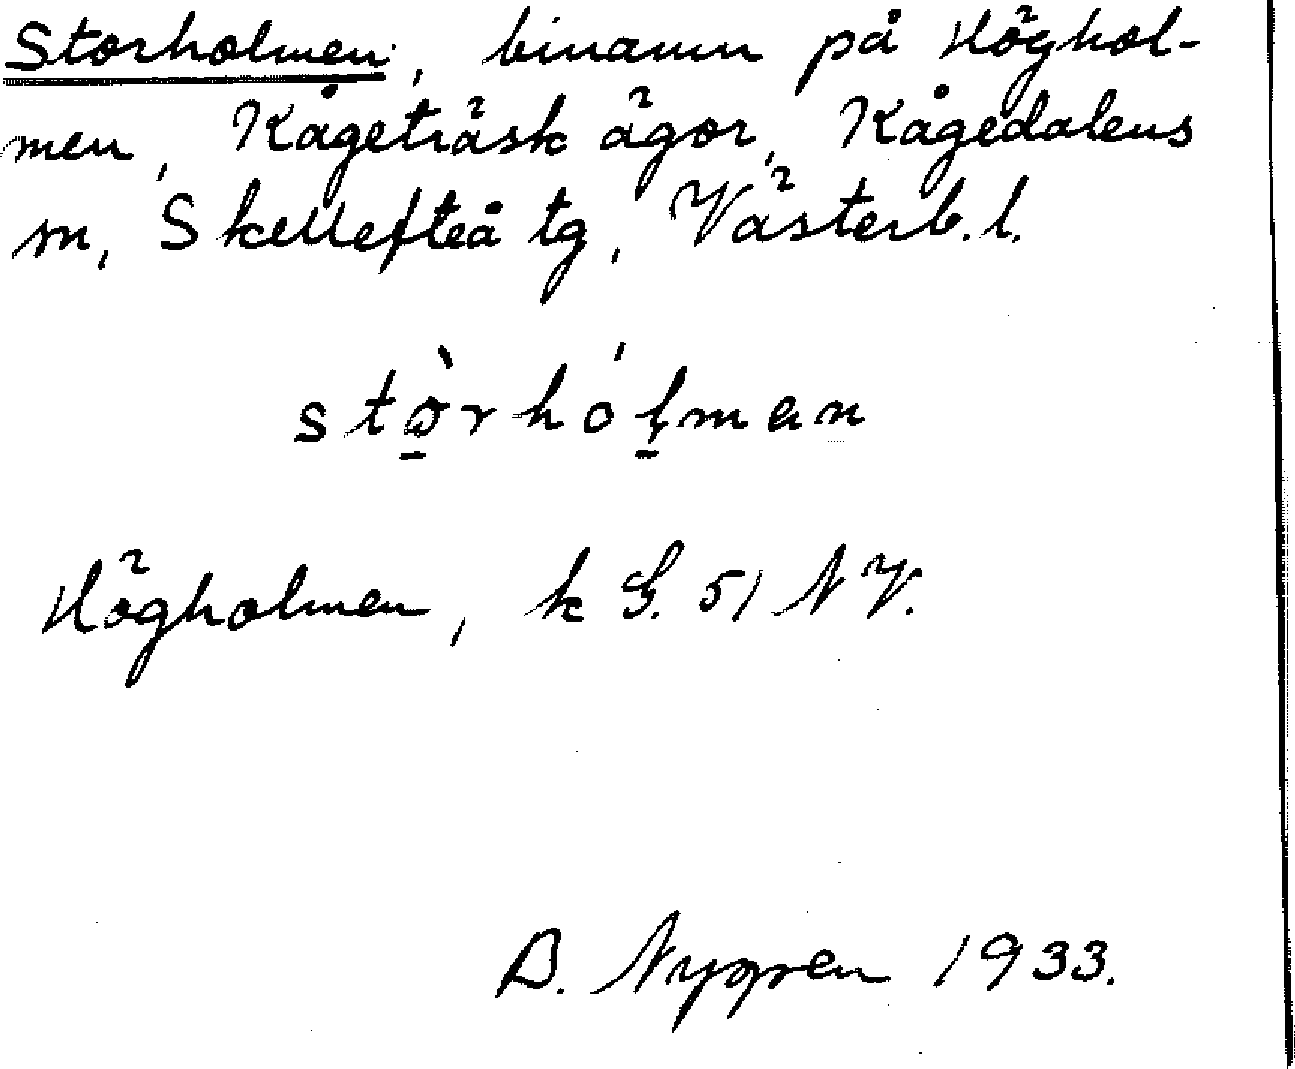 Storholmen, binamn på Höghol-
men, Kågeträsk ägor, Kågedalens
m, Skellefteå tg, Västerb. l.
stò̱rhóḻman
Högholmen, k G. 51 NV.
B. Nygren 1933.